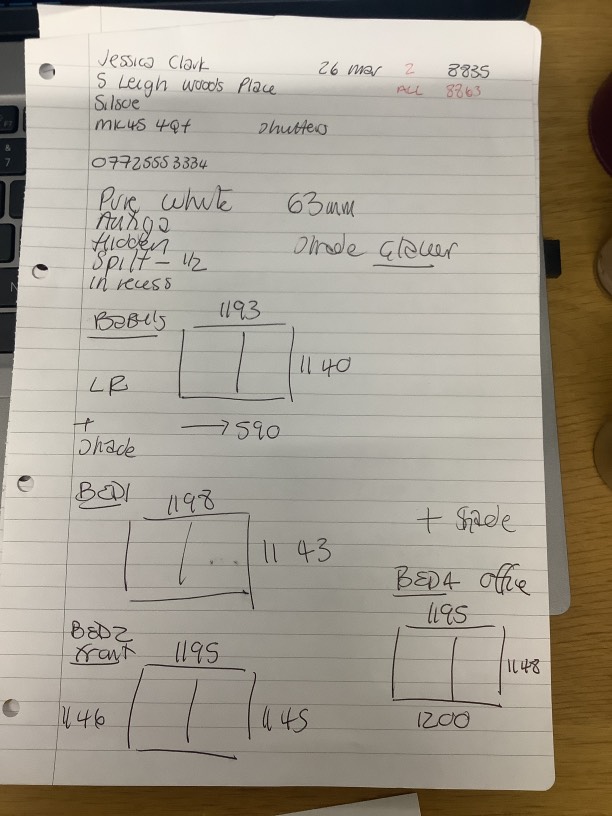 Jessica Clark 26 Mar 2 8835
5 Leigh Woods Place ALL 8863
Silsoe
MK45 4QT Shutters
07725553334
Pure White 63mm
Hidden Shade
Spilt - 1/2
in recess
1193
1140
LR
+ → 590
Shade
BED1 1198
1143
+ Shade
BED4 office
1195
1148
1200
BED2
Front 1195
1146 1145